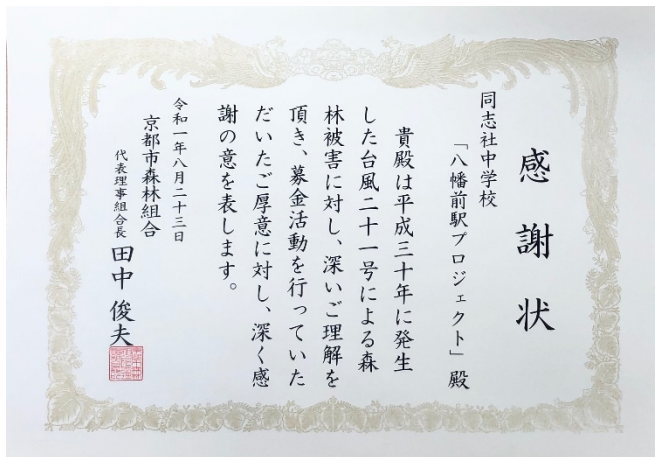 感謝状
同志社中学校
「八幡前駅プロジェクト」殿
貴殿は平成三十年に発生
した台風二十一号による森
林被害に対し、深いご理解を
頂き、募金活動を行っていた
だいたご厚意に対し、深く感
謝の意を表します。
令和一年八月二十三日
京都市森林組合
代表理事組合長 田中 俊夫